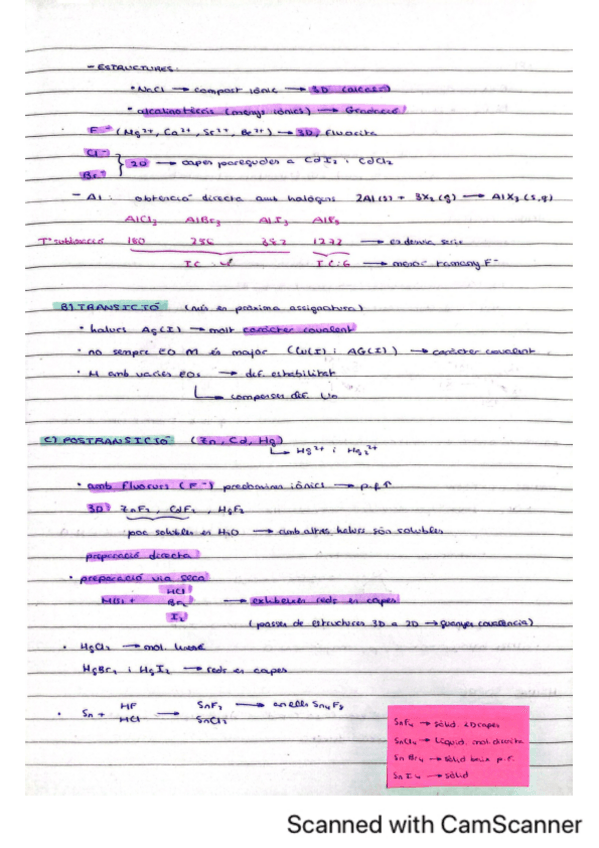 - ESTRUCTURES:
• NaCl → compost iònic → 3D (calcos)
• alcalinoterris (menys iònics) → Gradació
F⁻ (Mg²⁺, Ca²⁺, Sr²⁺, Ba²⁺) → 3D, Fluorita
Cl⁻
Br⁻ } 2D → capes paregudes a CdI₂ i CdCl₂
- Al: obtenció directa amb halògens 2Al(s) + 3X₂(g) → AlX₃(s,g)
AlCl₃ AlBr₃ AlI₃ AlF₃
Tª sublimació 180 256 382 1272 → es desvia sèrie
IC: 4 IC: 6 → menor tamany F⁻
B) TRANSICIÓ (més en pròxima assignatura)
• halurs Ag(I) → molt caràcter covalent
• no sempre EO M és major (Cu(I) i AG(I)) → caràcter covalent
• M amb varies EOs → dif. estabilitat
compensen dif. Un
C) POSTRANSICIÓ (Zn, Cd, Hg)
Hg²⁺ i Hg₂²⁺
• amb Fluorurs (F⁻) predominen iònics → p.f↑
3D) ZnF₂, CdF₂, HgF₂
poc solubles en H₂O → amb altres halurs són solubles
preparació directa
• preparació via seca
HCl
M(s) + Br₂ → exhibeixen reds en capes
I₂
(passes de estructures 3D a 2D → guanyes covalència)
• HgCl₂ → mol. lineal
HgBr₂ i HgI₂ → reds en capes
• Sn + HF → SnF₂ → anells Sn₄F₈
HCl SnCl₂
SnF₄ → sòlid 2D capes
SnCl₄ → Líquid. mol. discreta
SnBr₄ → sòlid baix p.f.
SnI₄ → sòlid
Scanned with CamScanner